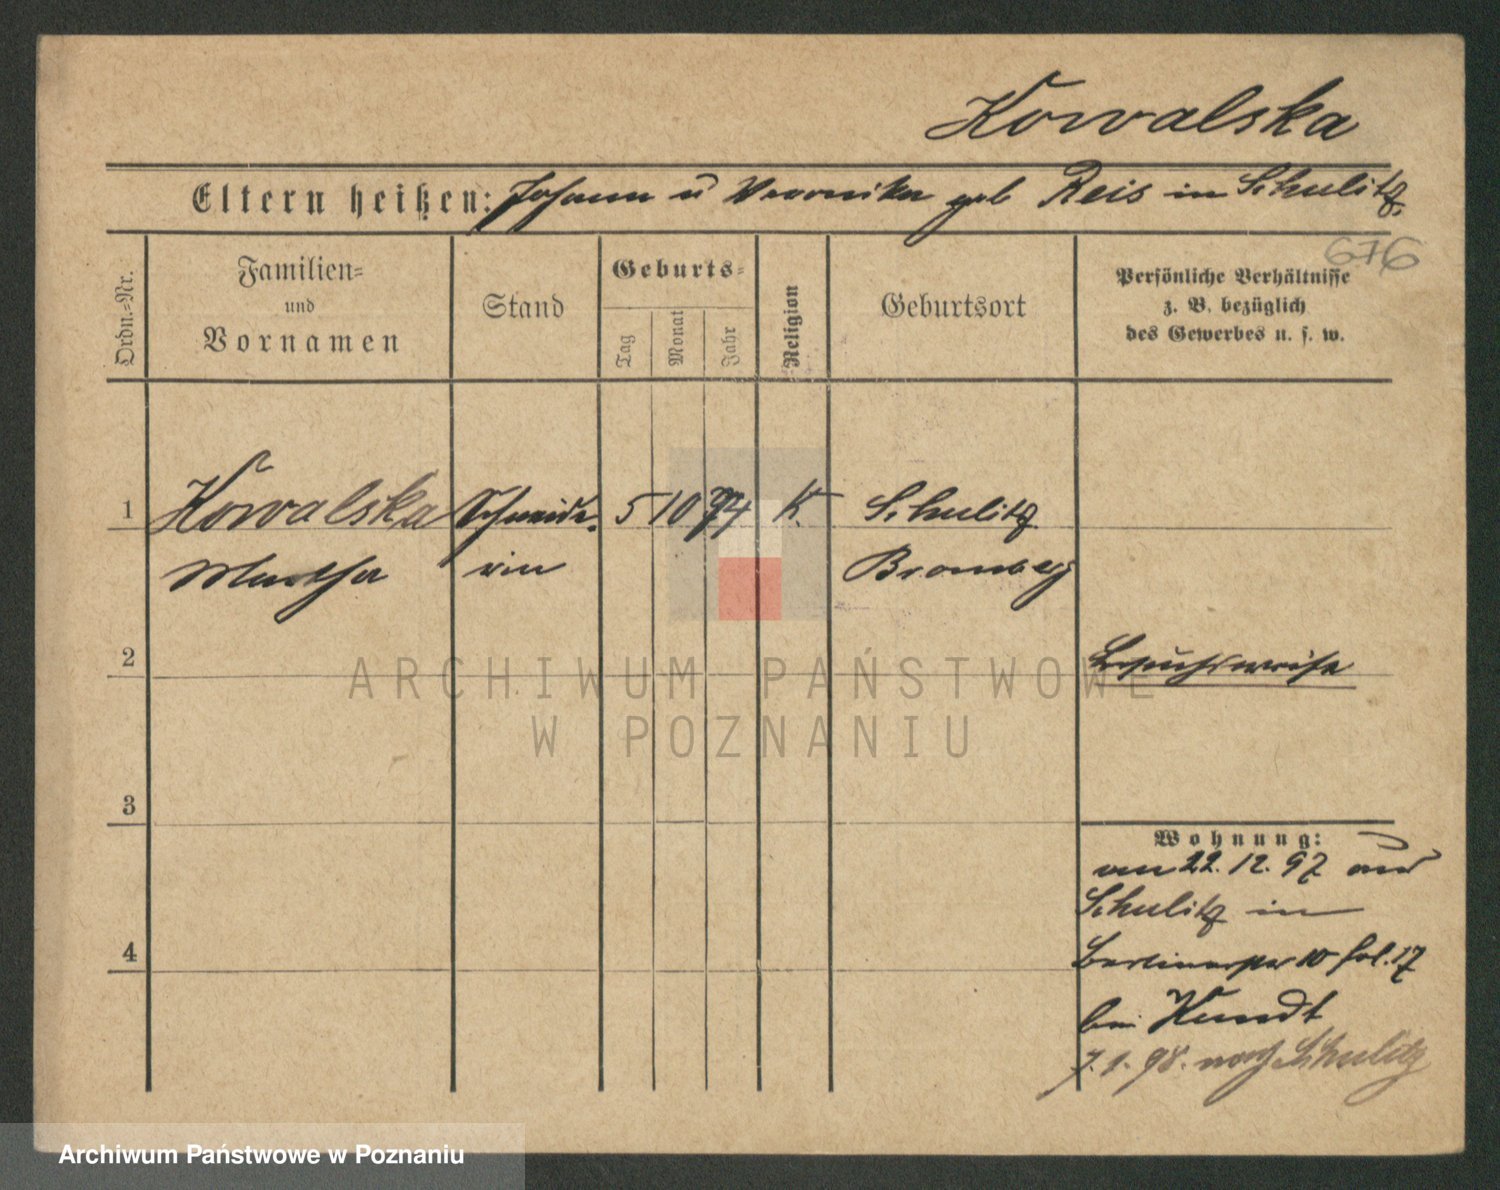 Kowalska
Eltern heißen: Johann u Veronika geb Reis in Schulitz.
676
Ordn.-Nr.
Familien-
und
Vornamen
Stand
Geburts-
Tag
Monat
Jahr
Religion
Geburtsort
Persönliche Verhältnisse
z. B. bezüglich
des Gewerbes u. s. w.
1 Kowalska Schneide- 5 10 74 K. Schulitz
Martha rin Bromberg
2 Besuchsweise
ARCHIWUM PAŃSTWOWE
W POZNANIU
3
Wohnung:
am 22. 12. 97 aus
Schulitz in
4 Berlinerstr 10 Hol. 17
bei Kundt
7. 1. 98. nach Schulitz
Archiwum Państwowe w Poznaniu